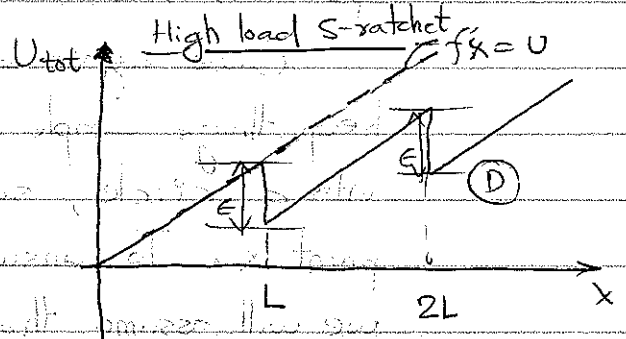 High load S-ratchet
U_tot
fx = U
ε
ε
D
L
2L
x